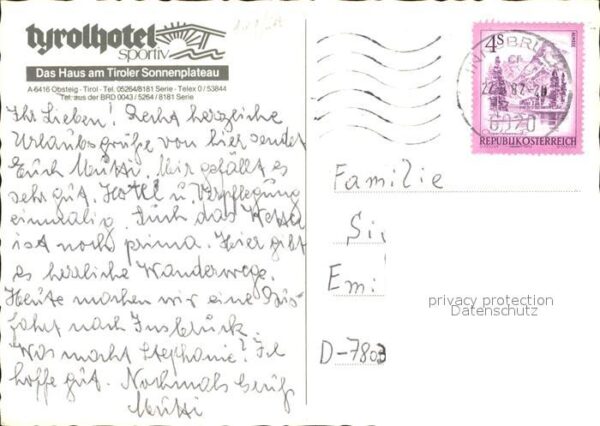 tyrolhotel
sportiv
Das Haus am Tiroler Sonnenplateau
A-6416 Obsteig · Tirol - Tel. 05264/8181 Serie - Telex 0 / 53844
Tel. aus der BRD 0043 / 5264 / 8181 Serie
Ihr Lieben! Recht herzliche
Urlaubsgrüße von hier sendet
Euch Mutti. Mir gefällt es
sehr gut. Hotel u. Verpflegung
einmalig. Auch das Wetter
ist noch prima. Hier gibt
es herrliche Wanderwege.
Heute machen wir eine Bus-
fahrt nach Innsbruck.
Was macht Stephanie? Ich
hoffe gut. Nochmals herzl.
Mutti
4S
REPUBLIK ÖSTERREICH
INNSBRUCK
6020
Familie
Si
Emi
D-780
privacy protection
Datenschutz